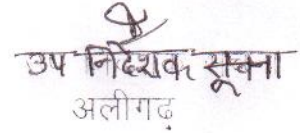 उप निदेशक सूचना
अलीगढ़